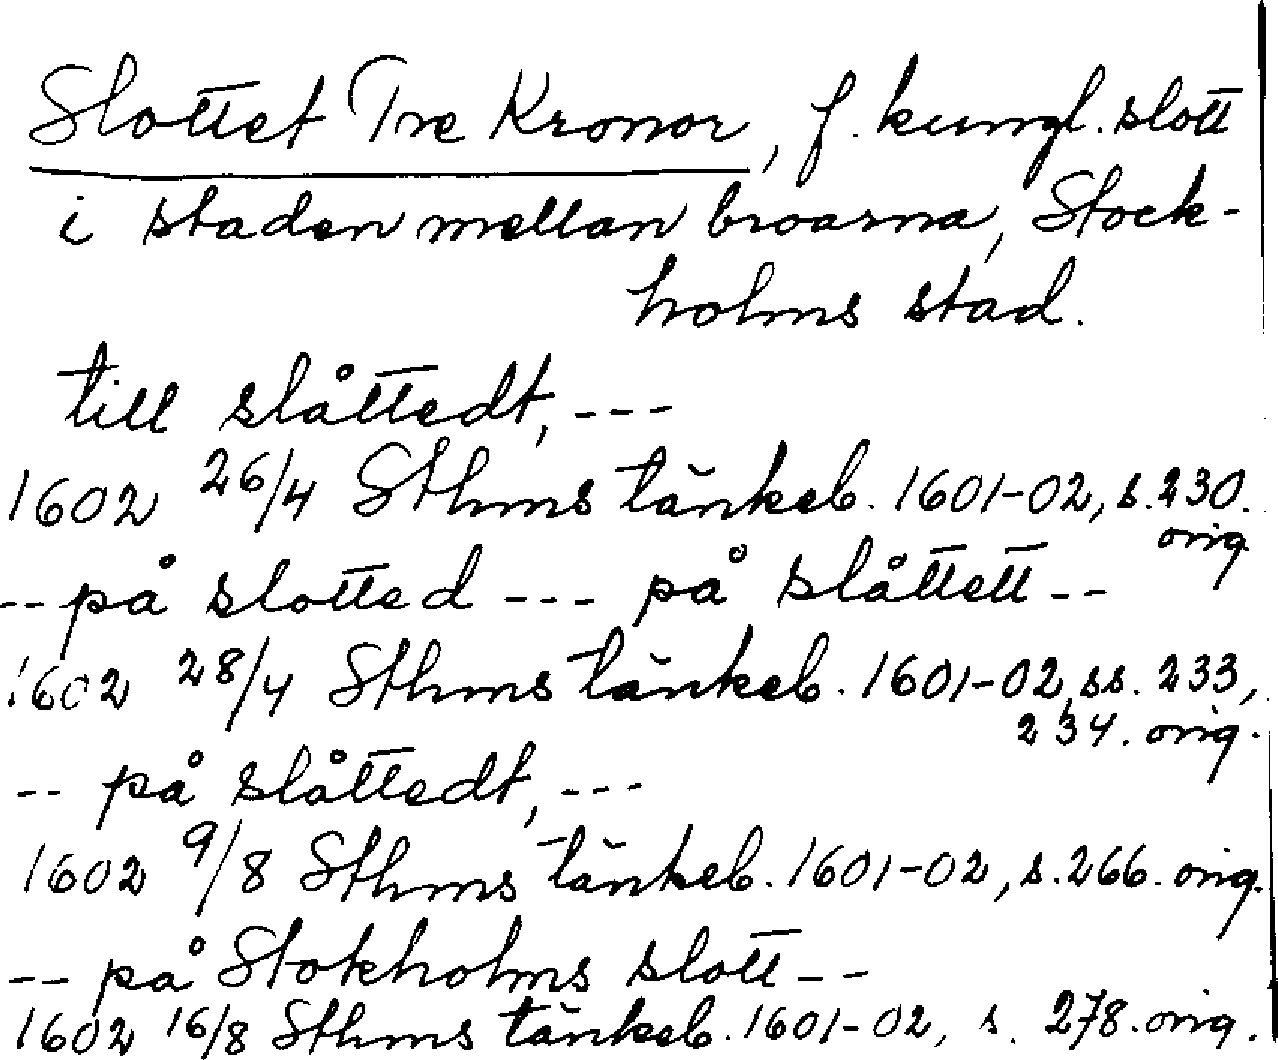 Slottet Tre Kronor, f. kungl. slott
i staden mellan broarna, Stock-
holms stad.
till slåttedt, ---
1602 26/4 Sthms tänkeb. 1601-02, s. 230.
orig
-- på slotted --- på slåttett --
1602 28/4 Sthms tänkeb. 1601-02, ss. 233,
234. orig.
-- på slåttedt, ---
1602 9/8 Sthms tänkeb. 1601-02, s. 266. orig.
-- på Stokholms slott --
1602 16/8 Sthms tänkeb. 1601-02, s. 278. orig.